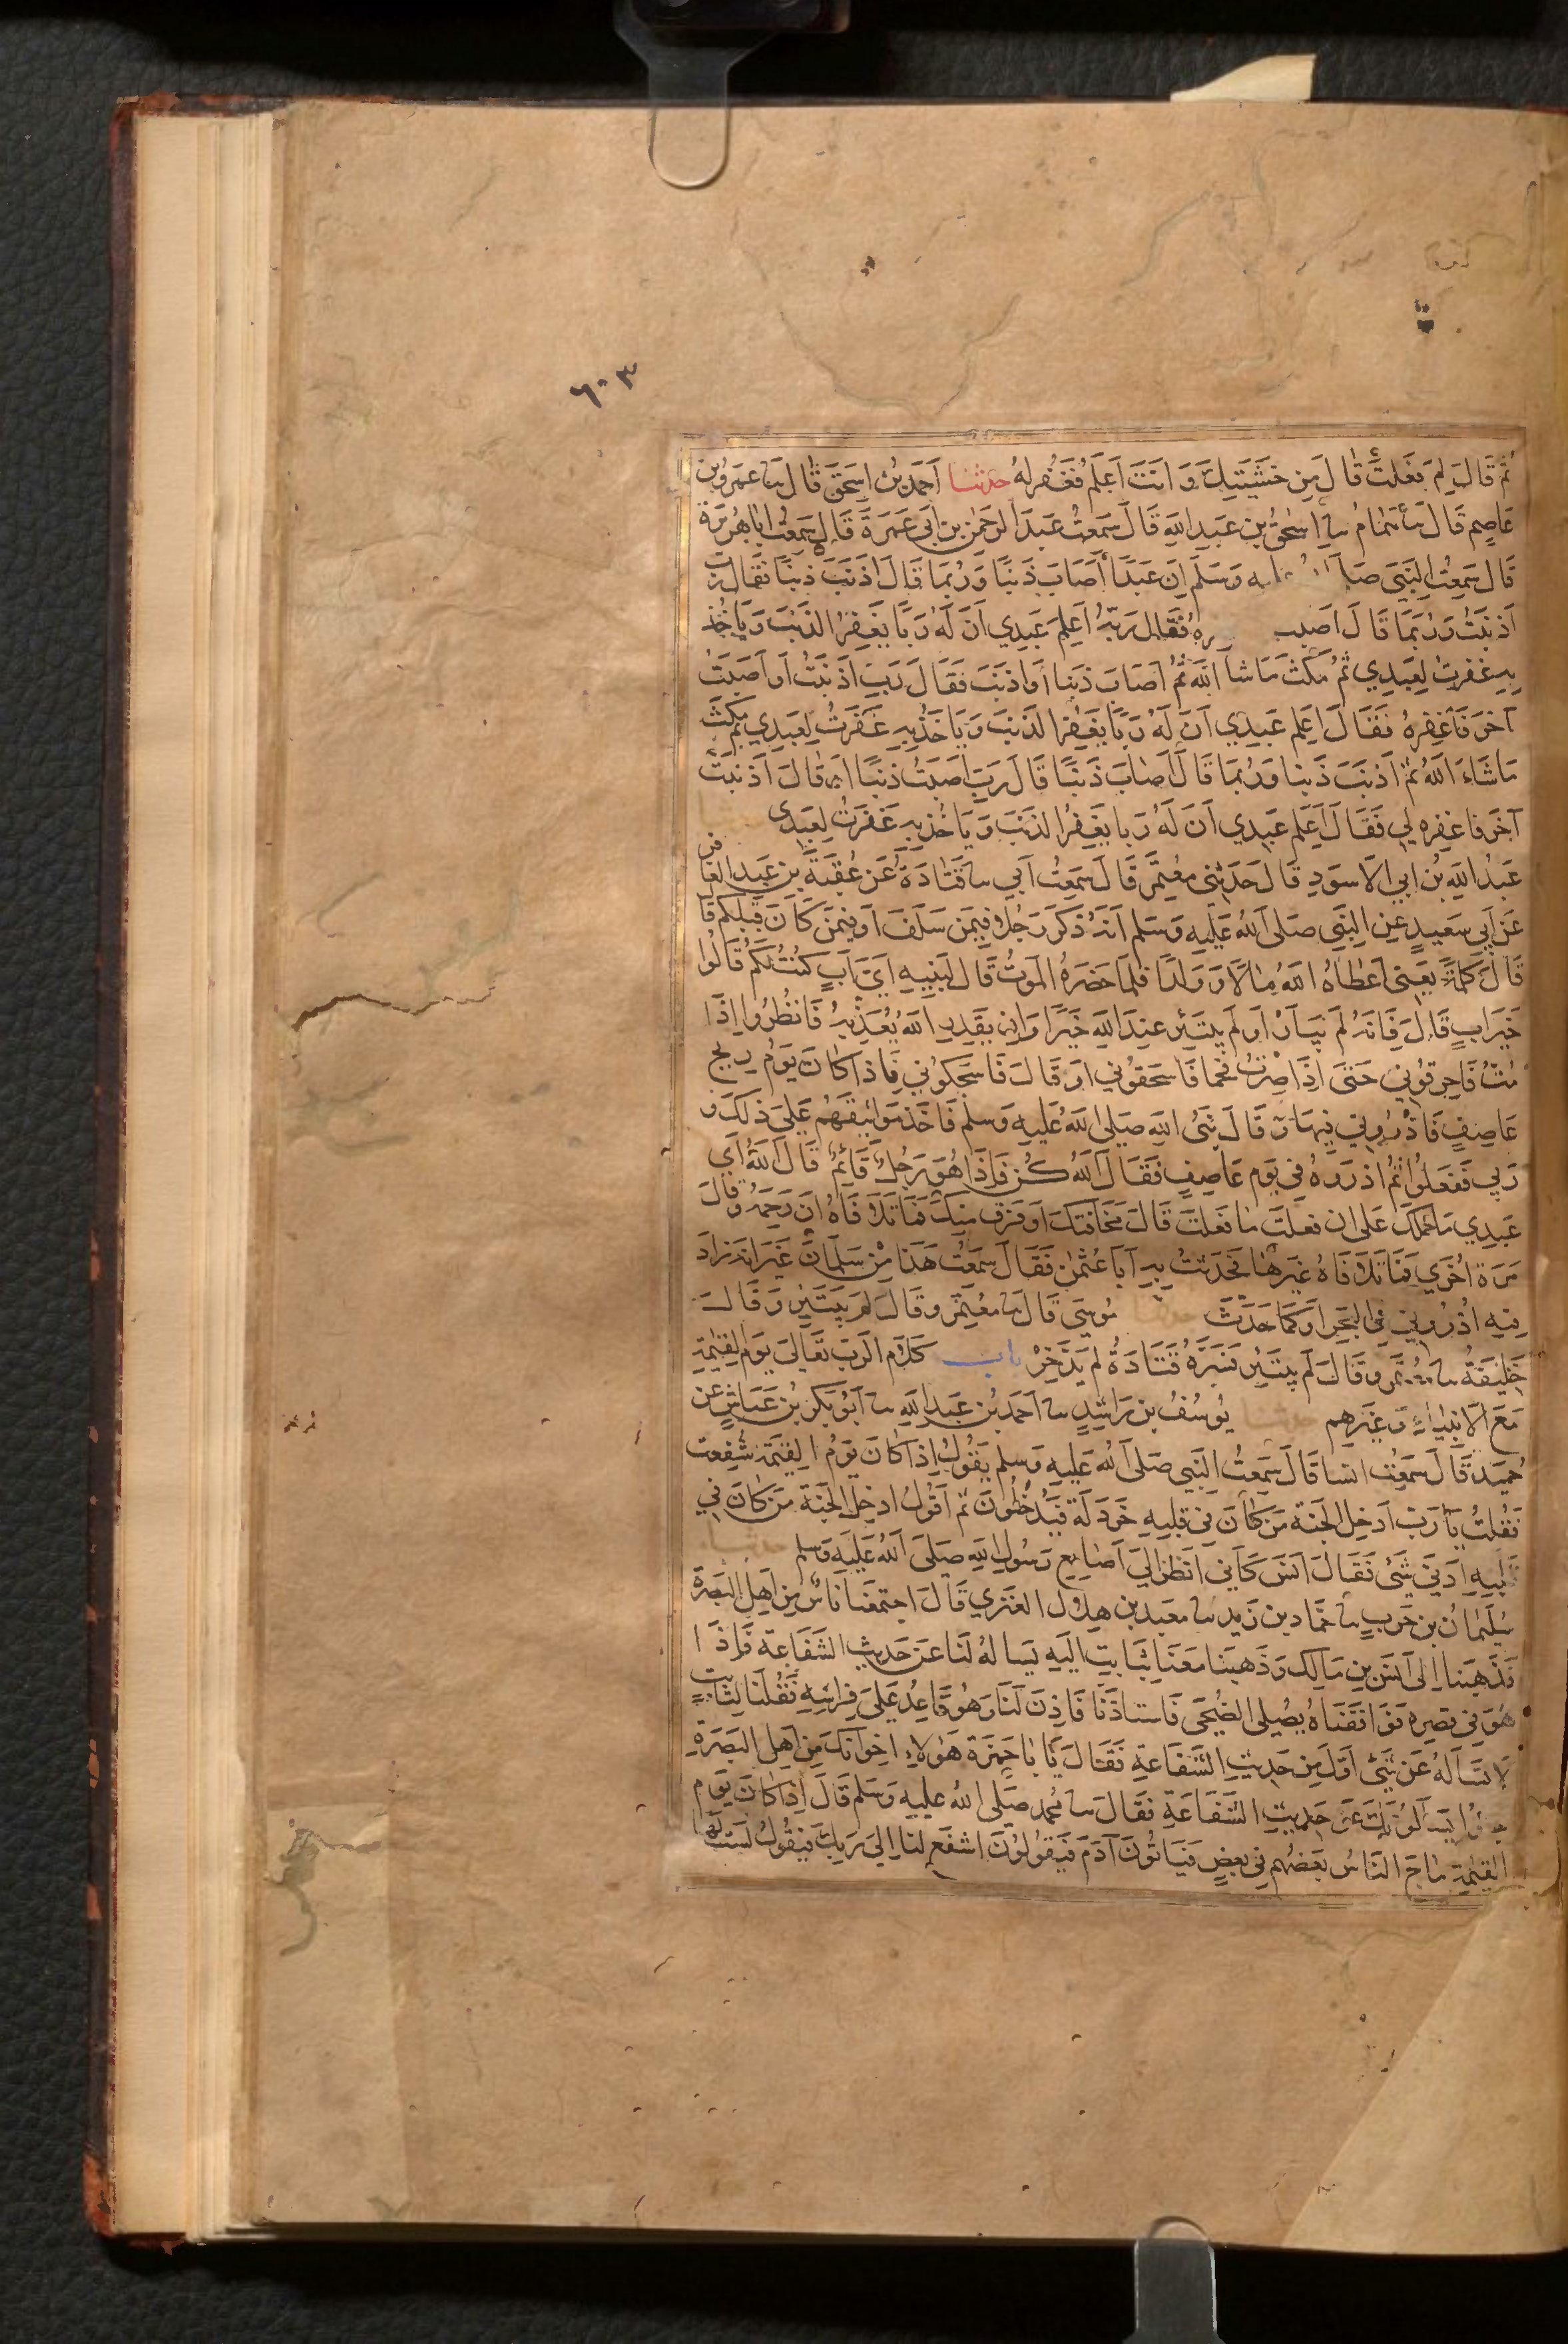 ٦٠٣
ثُمَّ قَالَ لِمَ فَعَلْتَ قَالَ مِنْ خَشْيَتِكَ وَأَنْتَ أَعْلَمُ فَغَفَرَ لَهُ حدثنا أَحْمَدُ بْنُ إِسْحَقَ قَالَ ثنا عَمْرُو بْنُ
عَاصِمٍ قَالَ ثنا هَمَّامٌ ثنا إِسْحَقُ بْنُ عَبْدِ اللهِ قَالَ سَمِعْتُ عَبْدَ الرَّحْمٰنِ بْنَ أَبِي عَمْرَةَ قَالَ سَمِعْتُ أَبَا هُرَيْرَةَ
قَالَ سَمِعْتُ النَّبِيَّ صَلَّى عليه وَسَلَّمَ إِنَّ عَبْدًا أَصَابَ ذَنْبًا وَرُبَّمَا قَالَ أَذْنَبَ ذَنْبًا فَقَالَ رَبِّ
أَذْنَبْتُ وَرُبَّمَا قَالَ أَصَبْتُ فَقَالَ رَبُّهُ أَعَلِمَ عَبْدِي أَنَّ لَهُ رَبًّا يَغْفِرُ الذَّنْبَ وَيَأْخُذُ
بِهِ غَفَرْتُ لِعَبْدِي ثُمَّ مَكَثَ مَا شَاءَ اللهُ ثُمَّ أَصَابَ ذَنْبًا أَوْ أَذْنَبَ فَقَالَ رَبِّ أَذْنَبْتُ أَوْ أَصَبْتُ
آخَرَ فَاغْفِرْهُ فَقَالَ أَعَلِمَ عَبْدِي أَنَّ لَهُ رَبًّا يَغْفِرُ الذَّنْبَ وَيَأْخُذُ بِهِ غَفَرْتُ لِعَبْدِي ثُمَّ مَكَثَ
مَا شَاءَ اللهُ ثُمَّ أَذْنَبَ ذَنْبًا وَرُبَّمَا قَالَ أَصَابَ ذَنْبًا قَالَ رَبِّ أَصَبْتُ ذَنْبًا أَوْ قَالَ أَذْنَبْتُ
آخَرَ فَاغْفِرْهُ لِي فَقَالَ أَعَلِمَ عَبْدِي أَنَّ لَهُ رَبًّا يَغْفِرُ الذَّنْبَ وَيَأْخُذُ بِهِ غَفَرْتُ لِعَبْدِي
عَبْدُ اللهِ بْنُ أَبِي الْأَسْوَدِ قَالَ حَدَّثَنِي مُعْتَمِرٌ قَالَ سَمِعْتُ أَبِي ثنا قَتَادَةُ عَنْ عُقْبَةَ بْنِ عَبْدِ الْغَافِرِ
عَنْ أَبِي سَعِيدٍ عَنِ النَّبِيِّ صَلَّى اللهُ عَلَيْهِ وَسَلَّمَ أَنَّهُ ذَكَرَ رَجُلًا فِيمَنْ سَلَفَ أَوْ فِيمَنْ كَانَ قَبْلَكُمْ قَا
قَالَ كَلِمَةً يَعْنِي أَعْطَاهُ اللهُ مَالًا وَوَلَدًا فَلَمَّا حَضَرَهُ الْمَوْتُ قَالَ لِبَنِيهِ أَيَّ أَبٍ كُنْتُ لَكُمْ قَالُوا
خَيْرَ أَبٍ قَالَ فَإِنَّهُ لَمْ يَبْتَئِرْ أَوْ لَمْ يَبْتَئِزْ عِنْدَ اللهِ خَيْرًا وَإِنْ يَقْدِرِ اللهُ يُعَذِّبْهُ فَانْظُرُوا إِذَا
مُتُّ فَأَحْرِقُونِي حَتَّى إِذَا صِرْتُ فَحْمًا فَاسْحَقُونِي أَوْ قَالَ فَاسْحَكُونِي فَإِذَا كَانَ يَوْمُ رِيحٍ
عَاصِفٍ فَأَذْرُونِي فِيهَا قَالَ نَبِيُّ اللهِ صَلَّى اللهُ عَلَيْهِ وَسَلَّمَ فَأَخَذَ مَوَاثِيقَهُمْ عَلَى ذَلِكَ وَ
رَبِّي فَفَعَلُوا ثُمَّ أَذْرَوْهُ فِي يَوْمٍ عَاصِفٍ فَقَالَ اللهُ كُنْ فَإِذَا هُوَ رَجُلٌ قَائِمٌ قَالَ اللهُ أَيْ
عَبْدِي مَا حَمَلَكَ عَلَى أَنْ فَعَلْتَ مَا فَعَلْتَ قَالَ مَخَافَتُكَ أَوْ فَرَقٌ مِنْكَ فَمَا تَلَافَاهُ أَنْ رَحِمَهُ وَقَالَ
مَرَّةً أُخْرَى فَمَا تَلَافَاهُ غَيْرُهَا فَحَدَّثْتُ بِهِ أَبَا عُثْمٰنَ فَقَالَ سَمِعْتُ هَذَا مِنْ سَلْمَانَ غَيْرَ أَنَّهُ زَادَ
فِيهِ أَذْرُونِي فِي الْبَحْرِ أَوْ كَمَا حَدَّثَ حدثنا مُوسَى قَالَ ثنا مُعْتَمِرٌ وَقَالَ لَمْ يَبْتَئِرْ وَقَالَ
خَلِيفَةُ ثنا مُعْتَمِرٌ وَقَالَ لَمْ يَبْتَئِزْ فَسَّرَهُ قَتَادَةُ لَمْ يَدَّخِرْ باب كَلَامِ الرَّبِّ تَعَالَى يَوْمَ الْقِيٰمَةِ
مَعَ الْأَنْبِيَاءِ وَغَيْرِهِمْ حدثنا يُوسُفُ بْنُ رَاشِدٍ ثنا أَحْمَدُ بْنُ عَبْدِ اللهِ ثنا أَبُو بَكْرِ بْنُ عَيَّاشٍ عَنْ
حُمَيْدٍ قَالَ سَمِعْتُ أَنَسًا قَالَ سَمِعْتُ النَّبِيَّ صَلَّى اللهُ عَلَيْهِ وَسَلَّمَ يَقُولُ إِذَا كَانَ يَوْمُ الْقِيٰمَةِ شُفِّعْتُ
فَقُلْتُ يَا رَبِّ أَدْخِلِ الْجَنَّةَ مَنْ كَانَ فِي قَلْبِهِ خَرْدَلَةٌ فَيَدْخُلُونَ ثُمَّ أَقُولُ أَدْخِلِ الْجَنَّةَ مَنْ كَانَ فِي
قَلْبِهِ أَدْنَى شَيْءٍ فَقَالَ أَنَسٌ كَأَنِّي أَنْظُرُ إِلَى أَصَابِعِ رَسُولِ اللهِ صَلَّى اللهُ عَلَيْهِ وَسَلَّمَ حدثنا
سُلَيْمَانُ بْنُ حَرْبٍ ثنا حَمَّادُ بْنُ زَيْدٍ ثنا مَعْبَدُ بْنُ هِلَالٍ الْعَنَزِيُّ قَالَ اجْتَمَعْنَا نَاسٌ مِنْ أَهْلِ الْبَصْرَةِ
فَذَهَبْنَا إِلَى أَنَسِ بْنِ مَالِكٍ وَذَهَبْنَا مَعَنَا بِثَابِتٍ إِلَيْهِ يَسْأَلُهُ لَنَا عَنْ حَدِيثِ الشَّفَاعَةِ فَإِذَا
هُوَ فِي قَصْرِهِ فَوَافَقْنَاهُ يُصَلِّي الضُّحَى فَاسْتَأْذَنَّا فَأَذِنَ لَنَا وَهُوَ قَاعِدٌ عَلَى فِرَاشِهِ فَقُلْنَا لِثَابِتٍ
لَا تَسْأَلْهُ عَنْ شَيْءٍ أَوَّلَ مِنْ حَدِيثِ الشَّفَاعَةِ فَقَالَ يَا أَبَا حَمْزَةَ هَؤُلَاءِ إِخْوَانُكَ مِنْ أَهْلِ الْبَصْرَةِ
يَسْأَلُونَكَ عَنْ حَدِيثِ الشَّفَاعَةِ فَقَالَ ثنا مُحَمَّدٌ صَلَّى اللهُ عَلَيْهِ وَسَلَّمَ قَالَ إِذَا كَانَ يَوْمُ
الْقِيٰمَةِ مَاجَ النَّاسُ بَعْضُهُمْ فِي بَعْضٍ فَيَأْتُونَ آدَمَ فَيَقُولُونَ اشْفَعْ لَنَا إِلَى رَبِّكَ فَيَقُولُ لَسْتُ